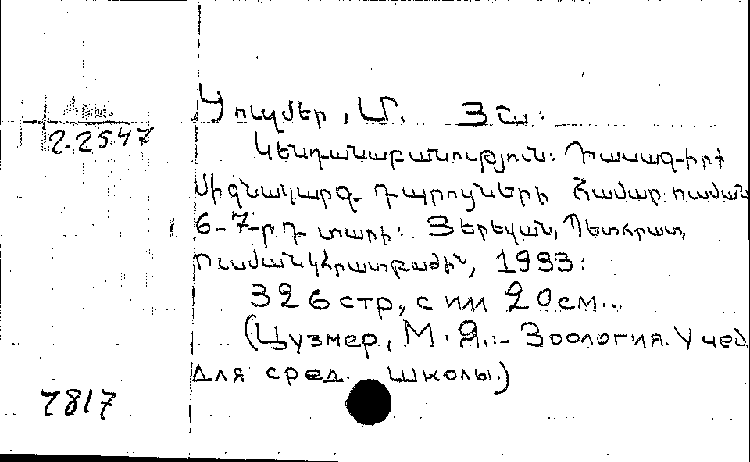 2.2547
Ցուզմեր, Մ. Յա.
Կենդանաբանություն: Դասագիրք
միջնակարգ դպրոցների համար. ուսման
6-7-րդ տարի: Յերեվան, Պետհրատ,
ուսմանկհրատբաժին, 1933:
326 стр., с ил 20 см..
(Цузмер, М. Я. - Зоология. Учеб
для сред. школы.)
7817